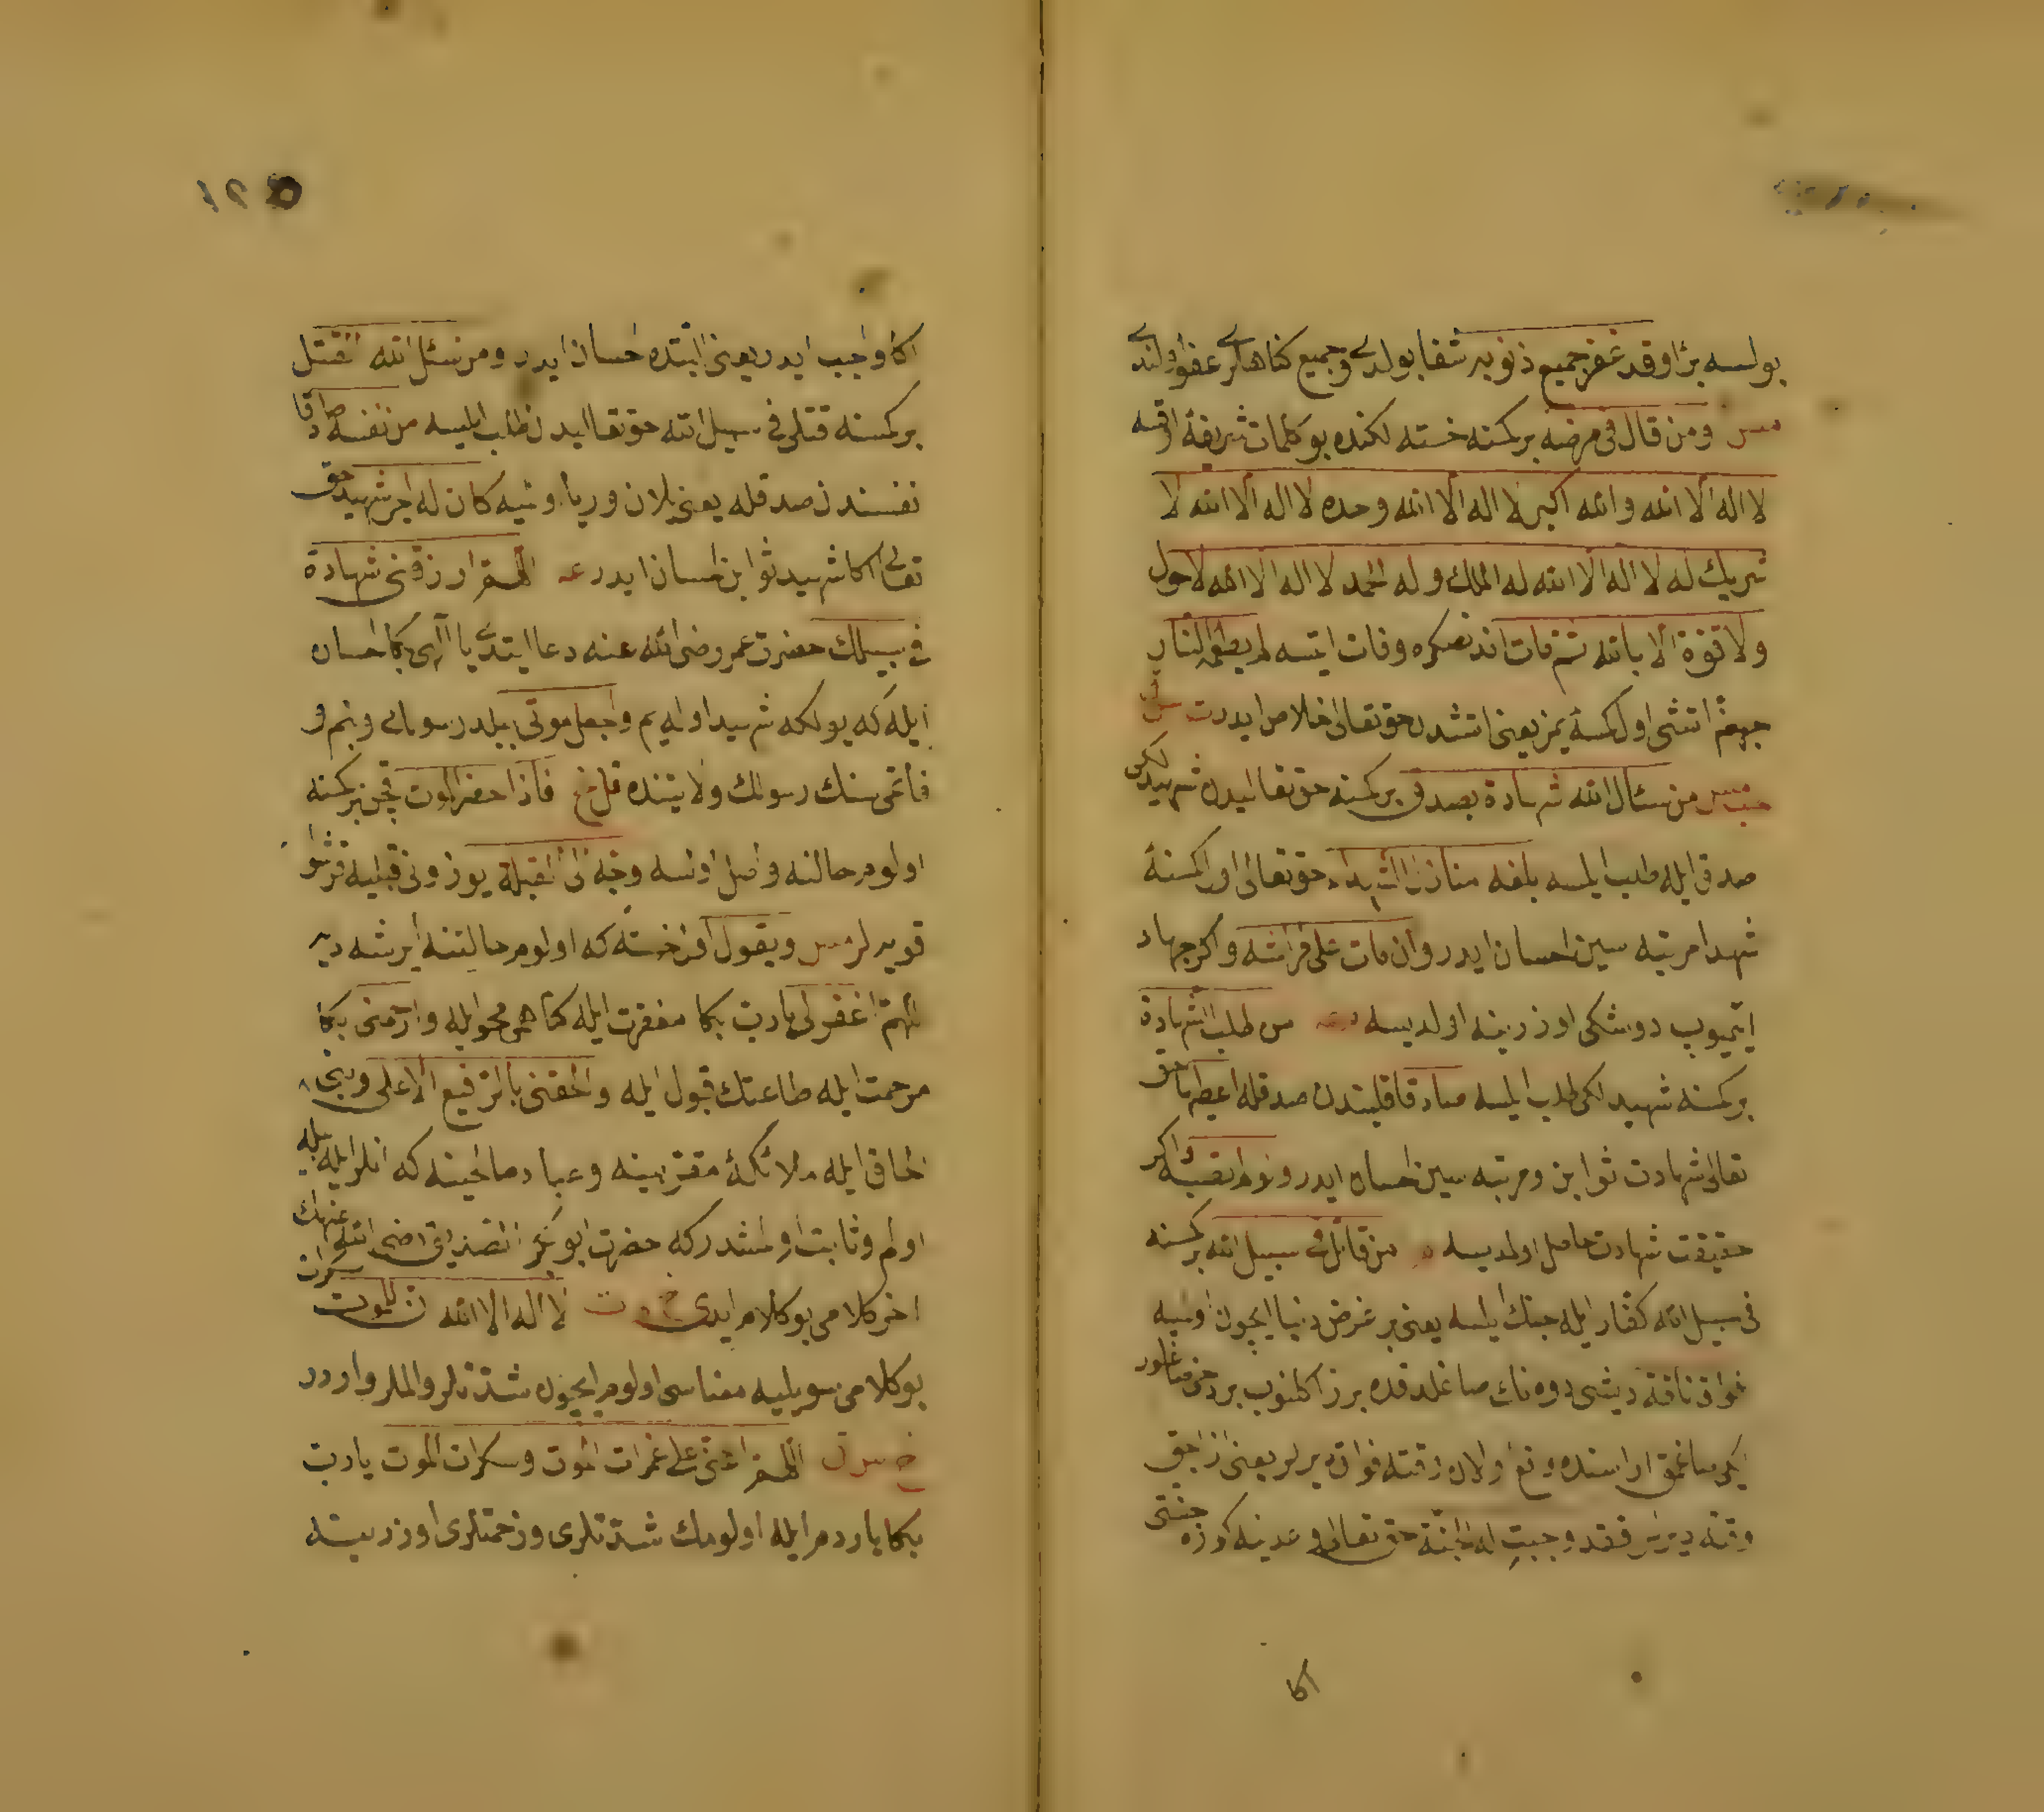 بولسه برا وقد غفر جميع ذنوبه شفا بولدى وجميع كناهلرى عفو اولندى
مس ومن قال فى مرضه بر كمسنه خسته لكنده بو كلمات شريفة اوقسه
لا اله الا الله والله اكبر لا اله الا الله وحده لا اله الا الله لا
شريك له لا اله الا الله له الملك وله الحمد لا اله الا الله لا حول
ولا قوة الا بالله ثم مات اندنصكره وفات ايتسه لم يطعمه النار
جهنم اتشى اول كمسه يمز يعنى اتشدن حق تعالى خلاص ايدر
من سئال الله شهادة بصدق بر كمسنه حق تعاليدن شهيدلكى
صدق ايله طلب ايلسه بلغه منازل الشهداء حق تعالى اول كمسنه
شهدا مرتبه سين احسان ايدر وان مات على فراشه واكر جهاد
ايتميوب دوشكى اوزرينه اولديسه من طلب الشهادة
بر كمسنه شهيدلكى طلب ايلسه صادقا قلبندن صدقله اعطيها حق
تعالى شهادت ثوابن ومرتبه سين احسان ايدر ولو لم تصبه واكر
حقيقت شهادت حاصل اولمديسه من قاتل فى سبيل الله بر كمسنه
فى سبيل الله كفار ايله جنك ايلسه يعنى بر غرض دنيا ايچون اولميه
فواق ناقة ديشى دوه نك صاغلدقده بر ز اكلنوب بر دخى صاغلور
ايكى صاغمق اراسنده واقع اولان وقته فواق ديرلر يعنى ازاجق
وقته ديرلر فقد وجبت له الجنة حق تعالى وعدينه كوره جنتى
اكا
١٢٥
اكا واجب ايدر يعنى البتده احسان ايدر ومن سئل الله القتل
بر كمسنه قتلى فى سبيل الله حق تعاليدن طلب ايلسه من نفسه صادقا
نفسندن صدقله يعنى يلان وريا اولميه كان له اجر شهيد حق
تعالى اكا شهيد ثوابن احسان ايدر عه اللهم ارزقنى شهادة
فى سبيلك حضرت عمر رضى الله عنه دعا ايتدى يا الهى بكا احسان
ايله كه يولكه شهيد اوليم واجعل موتى ببلد رسولك وبنم و
فاتمى سنك رسولك ولايتنده قل خ فاذا حضر الموت قچن بر كمسنه
اولوم حالنه واصل اولسه وجه الى القبلة يوزونى قبليه قرشو
قويه لر مس ويقول اول خسته كه اولوم حالتنه ايرشه ديه
اللهم اغفر لى يارب بكا مغفرت ايله كناهمى محو ايله وارحمنى بكا
مرحمت ايله طاعتك قبول ايله والحقنى بالرفيع الاعلى وبنى
الحاق ايله ملائكهٔ مقربينه وعباد صالحينه كه انلر ايله بله
اولم وثابت اولمشدر كه حضرت ابو بكر الصديق رضى الله عنهك
اخر كلامى بو كلام ايدى لا اله الا الله ان للموت سكرات
بو كلامى سويليه معناسى اولوم ايچون شدتلر والملر واردر
اللهم اعنى على غمرات الموت وسكرات الموت يارب
بكا ياردم ايله اولومك شدتلرى وزحمتلرى اوزرينه